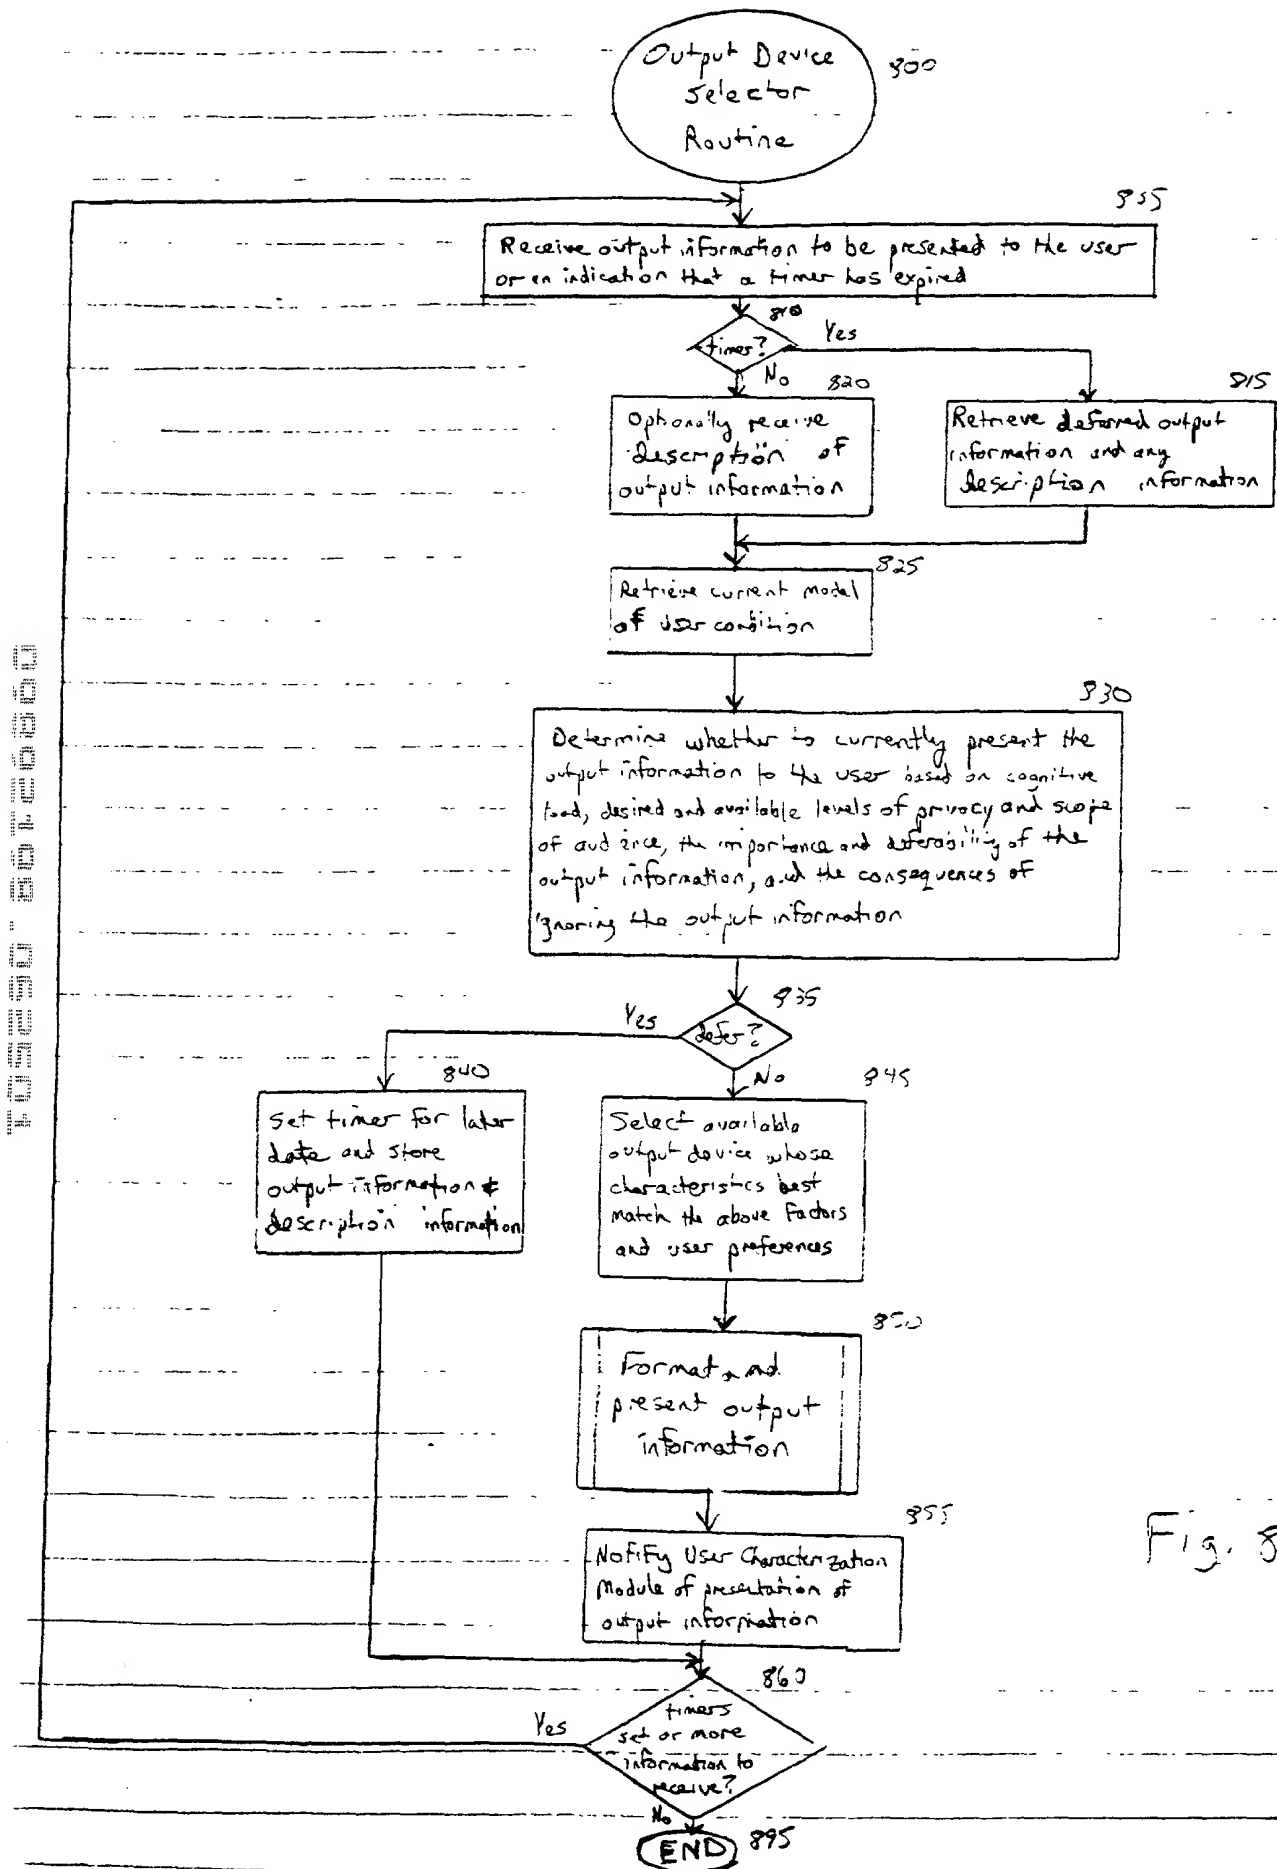 Output Device
Selector
Routine
800
855
Receive output information to be presented to the user
or an indication that a timer has expired
810
timer?
Yes
No
820
815
Optionally receive
description of
output information
Retrieve deferred output
information and any
description information
825
Retrieve current model
of user condition
830
Determine whether to currently present the
output information to the user based on cognitive
load, desired and available levels of privacy and scope
of audience, the importance and deferability of the
output information, and the consequences of
ignoring the output information
835
Yes
defer?
No
840
845
Set timer for later
date and store
output information &
description information
Select available
output device whose
characteristics best
match the above factors
and user preferences
850
Format and
present output
information
855
Notify User Characterization
Module of presentation of
output information
Fig. 8
860
timers
set or more
information to
receive?
Yes
No
END
895